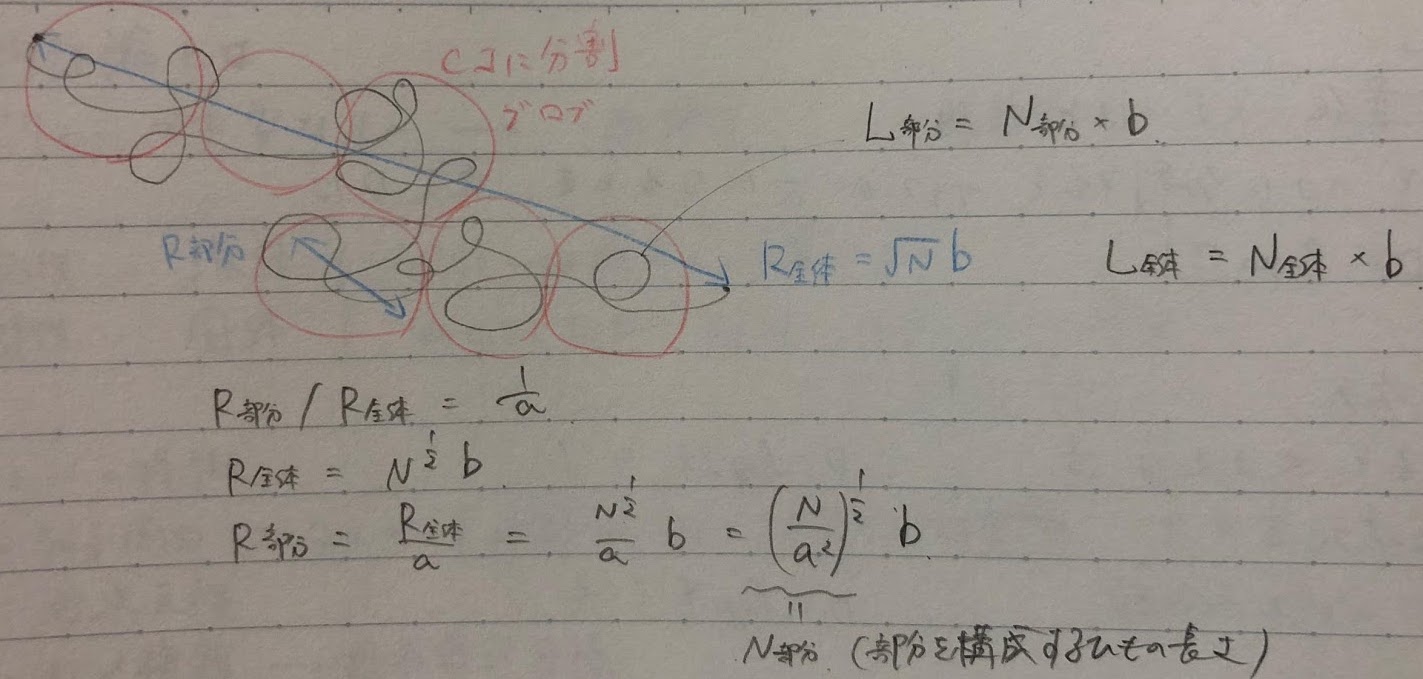 Cコに分割
ブロブ
L部分 = N部分 × b
R部分
R全体 = √N b
L全体 = N全体 × b
R部分 / R全体 = 1/a
R全体 = N^(1/2) b
R部分 = R全体/a = N^(1/2)/a b = (N/a²)^(1/2) b
||
N部分 (部分を構成するひもの長さ)